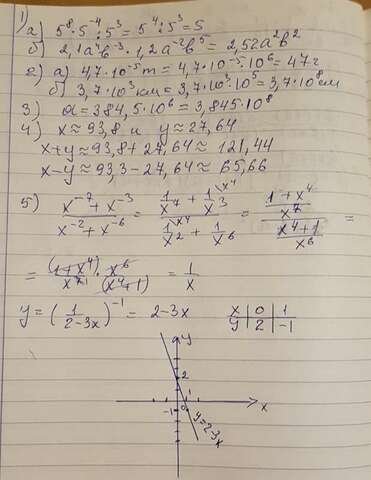 1)
а) 5⁸·5⁻⁴:5³ = 5⁴:5³ = 5
б) 2,1a⁴b⁻³·1,2a⁻²b⁵ = 2,52a²b²
2) а) 4,7·10⁻⁵т = 4,7·10⁻⁵·10⁶ = 47г
б) 3,7·10³км = 3,7·10³·10⁵ = 3,7·10⁸см
3) a = 384,5·10⁶ = 3,845·10⁸
4) x ≈ 93,8 и y ≈ 27,64
x+y ≈ 93,8+27,64 ≈ 121,44
x-y ≈ 93,3-27,64 ≈ 65,66
5) (x⁻⁷+x⁻³)/(x⁻²+x⁻⁶) = (1/x⁷ + 1\x⁴/x³)/(1\x⁴/x² + 1/x⁶) = ((1+x⁴)/x⁷)/((x⁴+1)/x⁶) =
= (1+x⁴)/x⁷ · x⁶/(x⁴+1) = 1/x
y = (1/(2-3x))⁻¹ = 2-3x
x 0 1
y 2 -1
y
2
1
0
-1
x
y=2-3x